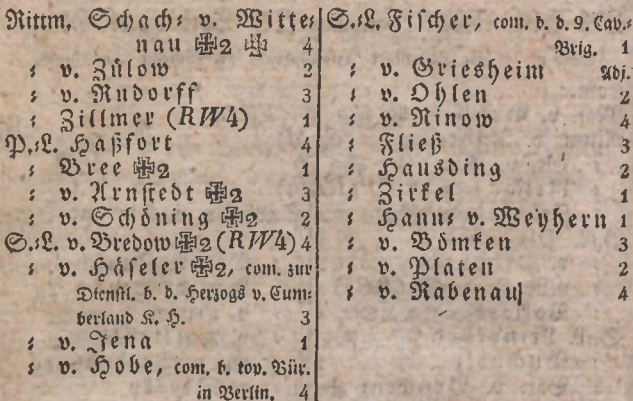 Rittm. Schach= v. Witte=
nau ✠2 ✠ 4
= v. Zülow 2
= v. Rudorff 3
= Zillmer (RW4) 1
P.=L. Haßfort 4
= Bree ✠2 1
= v. Arnstedt ✠2 3
= v. Schöning ✠2 2
S.=L. v. Bredow ✠2 (RW4) 4
= v. Häseler ✠2, com. zur
Dienstl. b. d. Herzogs v. Cum=
berland K. H. 3
= v. Jena 1
= v. Hobe, com. b. top. Bür.
in Berlin. 4
S.=L. Fischer, com. b. d. 9. Cav.=
Brig. 1
= v. Griesheim Adj.
= v. Ohlen 2
= v. Rinow 4
= Fließ 3
= Hausding 2
= Zirkel 1
= Hann= v. Weyhern 1
= v. Bömken 3
= v. Platen 2
= v. Rabenau 4